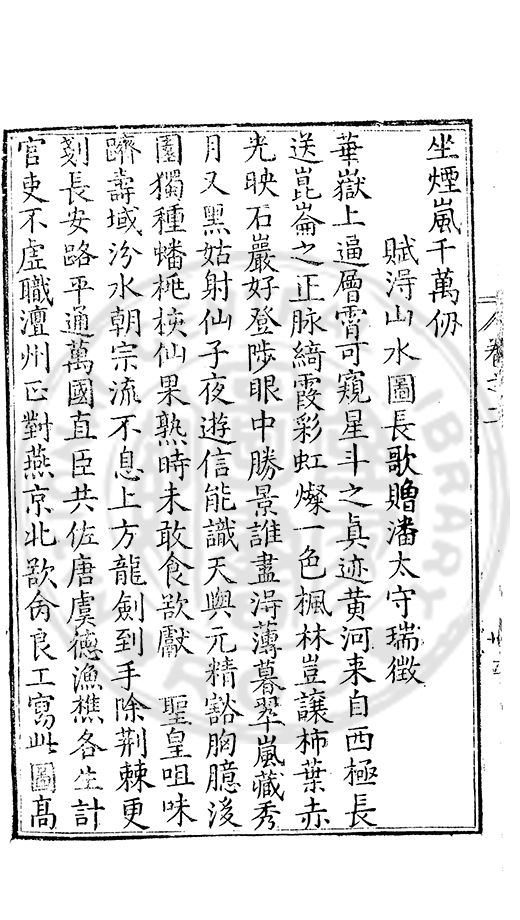 坐煙嵐千萬仞
賦得山水圖長歌贈潘太守瑞徵
華嶽上逼層霄可窺星斗之真迹黃河来自西極長
送崑崙之正脉綺霞彩虹燦一色楓林豈讓柿葉赤
光映石巖好登陟眼中勝景誰盡得薄暮翠嵐藏秀
月又黑姑射仙子夜遊信能識天與元精豁胸臆後
園獨種蟠桃核仙果熟時未敢食欲獻　聖皇咀味
躋壽域汾水朝宗流不息上方龍劍到手除荆棘更
剗長安路平通萬國直臣共佐唐虞德漁樵各生計
官吏不虛職澶州正對燕京北欲命良工寫此圖高
卷之二